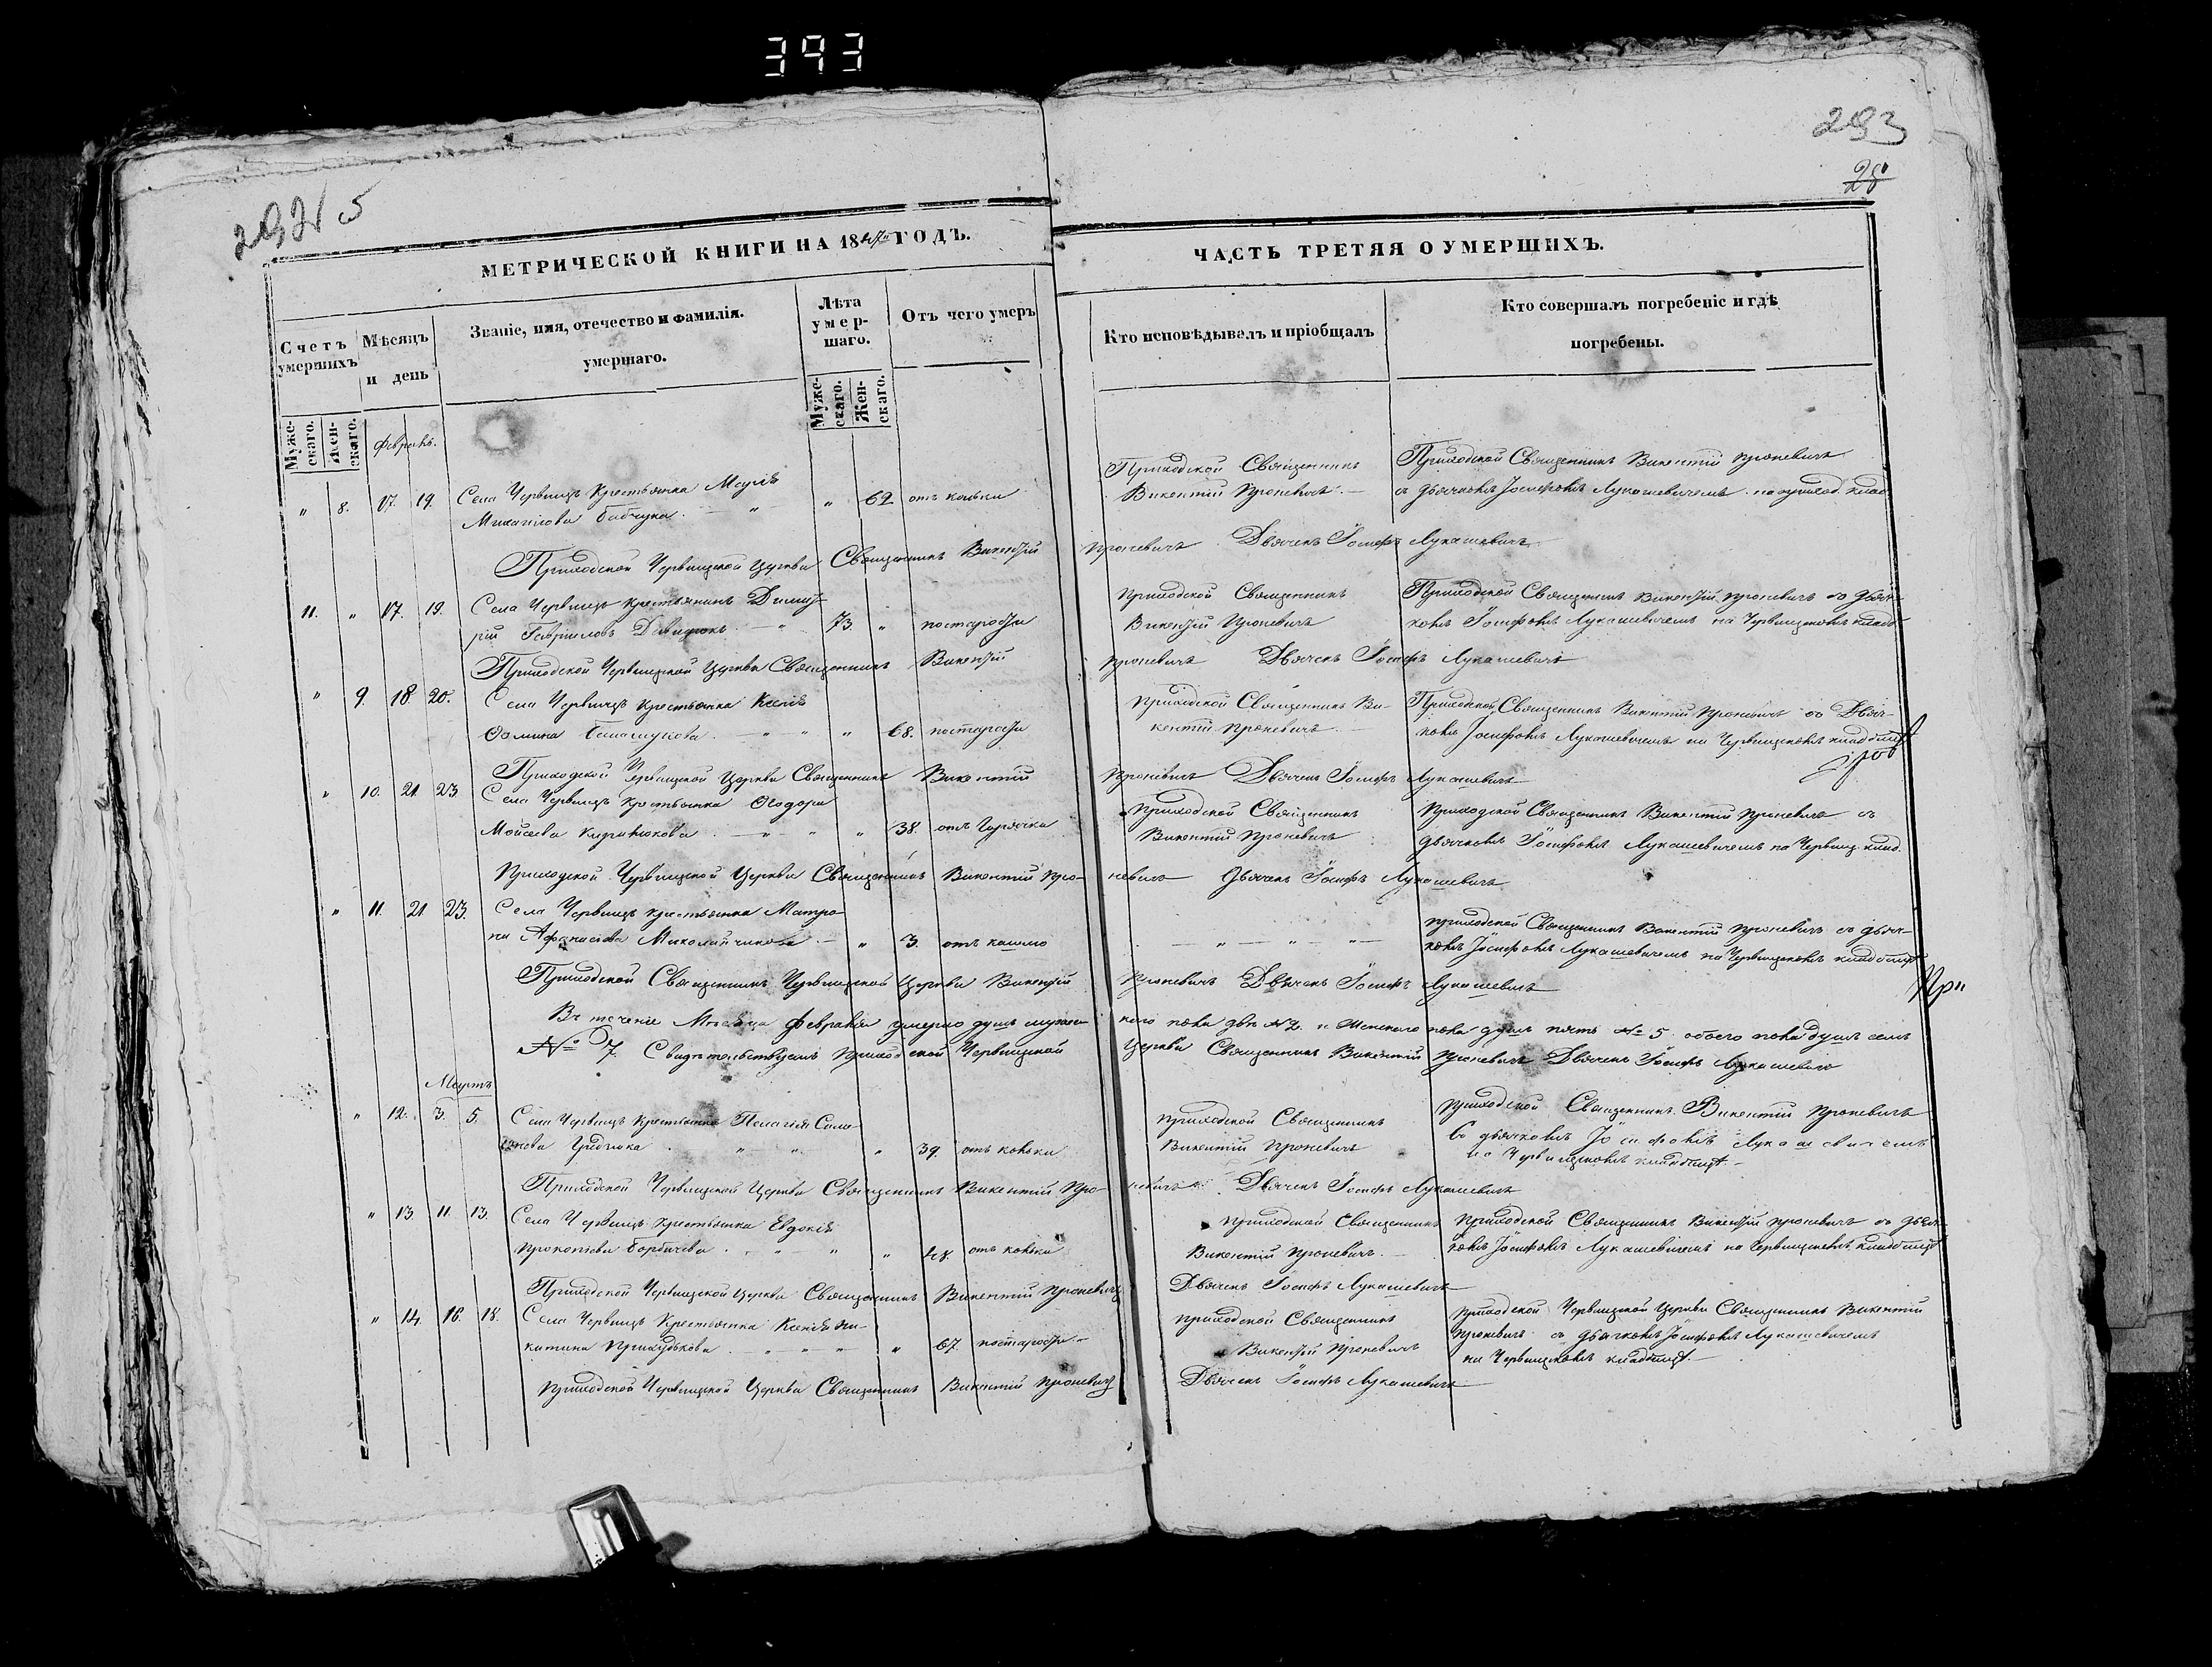 393
293
28
МЕТРИЧЕСКОЙ КНИГИ НА 1847 ГОДЪ.
Счетъ умершихъ
Мѣсяцъ и день
Званіе, имя, отечество и фамилія.
умершаго.
Лѣта умер-шаго.
Отъ чего умеръ
Муже-скаго.
Жен-скаго.
Муже-скаго.
Жен-скаго.
Февраль.
" 8. 17. 19. Села Червищъ Крестьянка Марія " 62 отъ
Михаилова Бабчука
Приходской Червищской Церкви Священникъ Викентій
11. " 17. 19. Села Червищъ Крестьянинъ Димит-
рій Гавриловъ Давидюкъ 73. "
Приходской Червищской Церкви Священникъ Викентій
" 9. 18. 20. Села Червищъ Крестьянка Ксенія
Фомина " 68.
Приходской Червищской Церкви Священникъ Викентій
" 10. 21. 23. Села Червищъ Крестьянка Ѳеодора
Мойсеева " 38. отъ Горячки
Приходской Червищской Церкви Священникъ Викентій Про-
" 11. 21 23. Села Червищъ Крестьянка Матро-
на Афанасіева Миколайчикова " 3. отъ кашлю
Приходской Священникъ Червищской Церкви Викентій
Въ теченіе Мѣсяца Февраля умерло душъ мужес-
№ 7. Свидѣтельствуемъ Приходской Червищской
Мартъ
" 12. 3. 5. Села Червищъ Крестьянка Пелагія
" 39. отъ
Приходской Червищской Церкви Священникъ Викентій Про-
" 13. 11. 13. Села Червищъ Крестьянка Евдокія
Прокопіева " 48. отъ
Приходской Червищской Церкви Священникъ Викентій Проневичъ
" 14. 16. 18. Села Червищъ Крестьянка Ксенія Ни-
китина " 67.
Приходской Червищской Церкви Священникъ Викентій Проневичъ
ЧАСТЬ ТРЕТЯЯ О УМЕРШИХЪ.
Кто исповѣдывалъ и пріобщалъ
Кто совершалъ погребеніе и гдѣ
погребены.
Приходской Священникъ
Викентій Проневичъ.
Приходской Священникъ Викентій Проневичъ
съ дьячкомъ Іосифомъ Лукашевичемъ на приход. клад.
Проневичъ Дьячекъ Іосифъ Лукашевичъ
Приходской Священникъ
Викентій Проневичъ
Приходской Священникъ Викентій Проневичъ съ дьяч-
комъ Іосифомъ Лукашевичемъ на Червищскомъ кладб.
Проневичъ Дьячекъ Іосифъ Лукашевичъ
Приходской Священникъ Ви-
кентій Проневичъ
Приходской Священникъ Викентій Проневичъ съ Дьяч-
комъ Іосифомъ Лукашевичемъ на Червищскомъ кладбищѣ
Проневичъ Дьячекъ Іосифъ Лукашевичъ
Приходской Священникъ
Викентій Проневичъ
Приходской Священникъ Викентій Проневичъ съ
дьячкомъ Іосифомъ Лукашевичемъ на Червищ. клад.
невичъ Дьячекъ Іосифъ Лукашевичъ
Приходской Священникъ Викентій Проневичъ съ дьяч-
комъ Іосифомъ Лукашевичемъ на Червищскомъ кладбищѣ
Проневичъ Дьячекъ Іосифъ Лукашевичъ
кого пола двѣ №2. и Женского пола душъ пять № 5 обоего пола душъ семь
Церкви Священникъ Викентій Проневичъ Дьячекъ Іосифъ Лукашевичъ
Приходской Священникъ
Викентій Проневичъ
Приходской Священникъ Викентій Проневичъ
съ дьячкомъ Іосифомъ Лукашевичемъ
на Червищскомъ кладбищѣ.
невичъ Дьячекъ Іосифъ Лукашевичъ
Приходской Священникъ
Викентій Проневичъ.
Приходской Священникъ Викентій Проневичъ съ дьяч-
комъ Іосифомъ Лукашевичемъ на Червищскомъ кладбищѣ
Дьячекъ Іосифъ Лукашевичъ
Приходской Священникъ
Викентій Проневичъ
Приходской Червищской Церкви Священникъ Викентій
Проневичъ съ дьячкомъ Іосифомъ Лукашевичемъ
на Червищскомъ кладбищѣ.
Дьячекъ Іосифъ Лукашевичъ